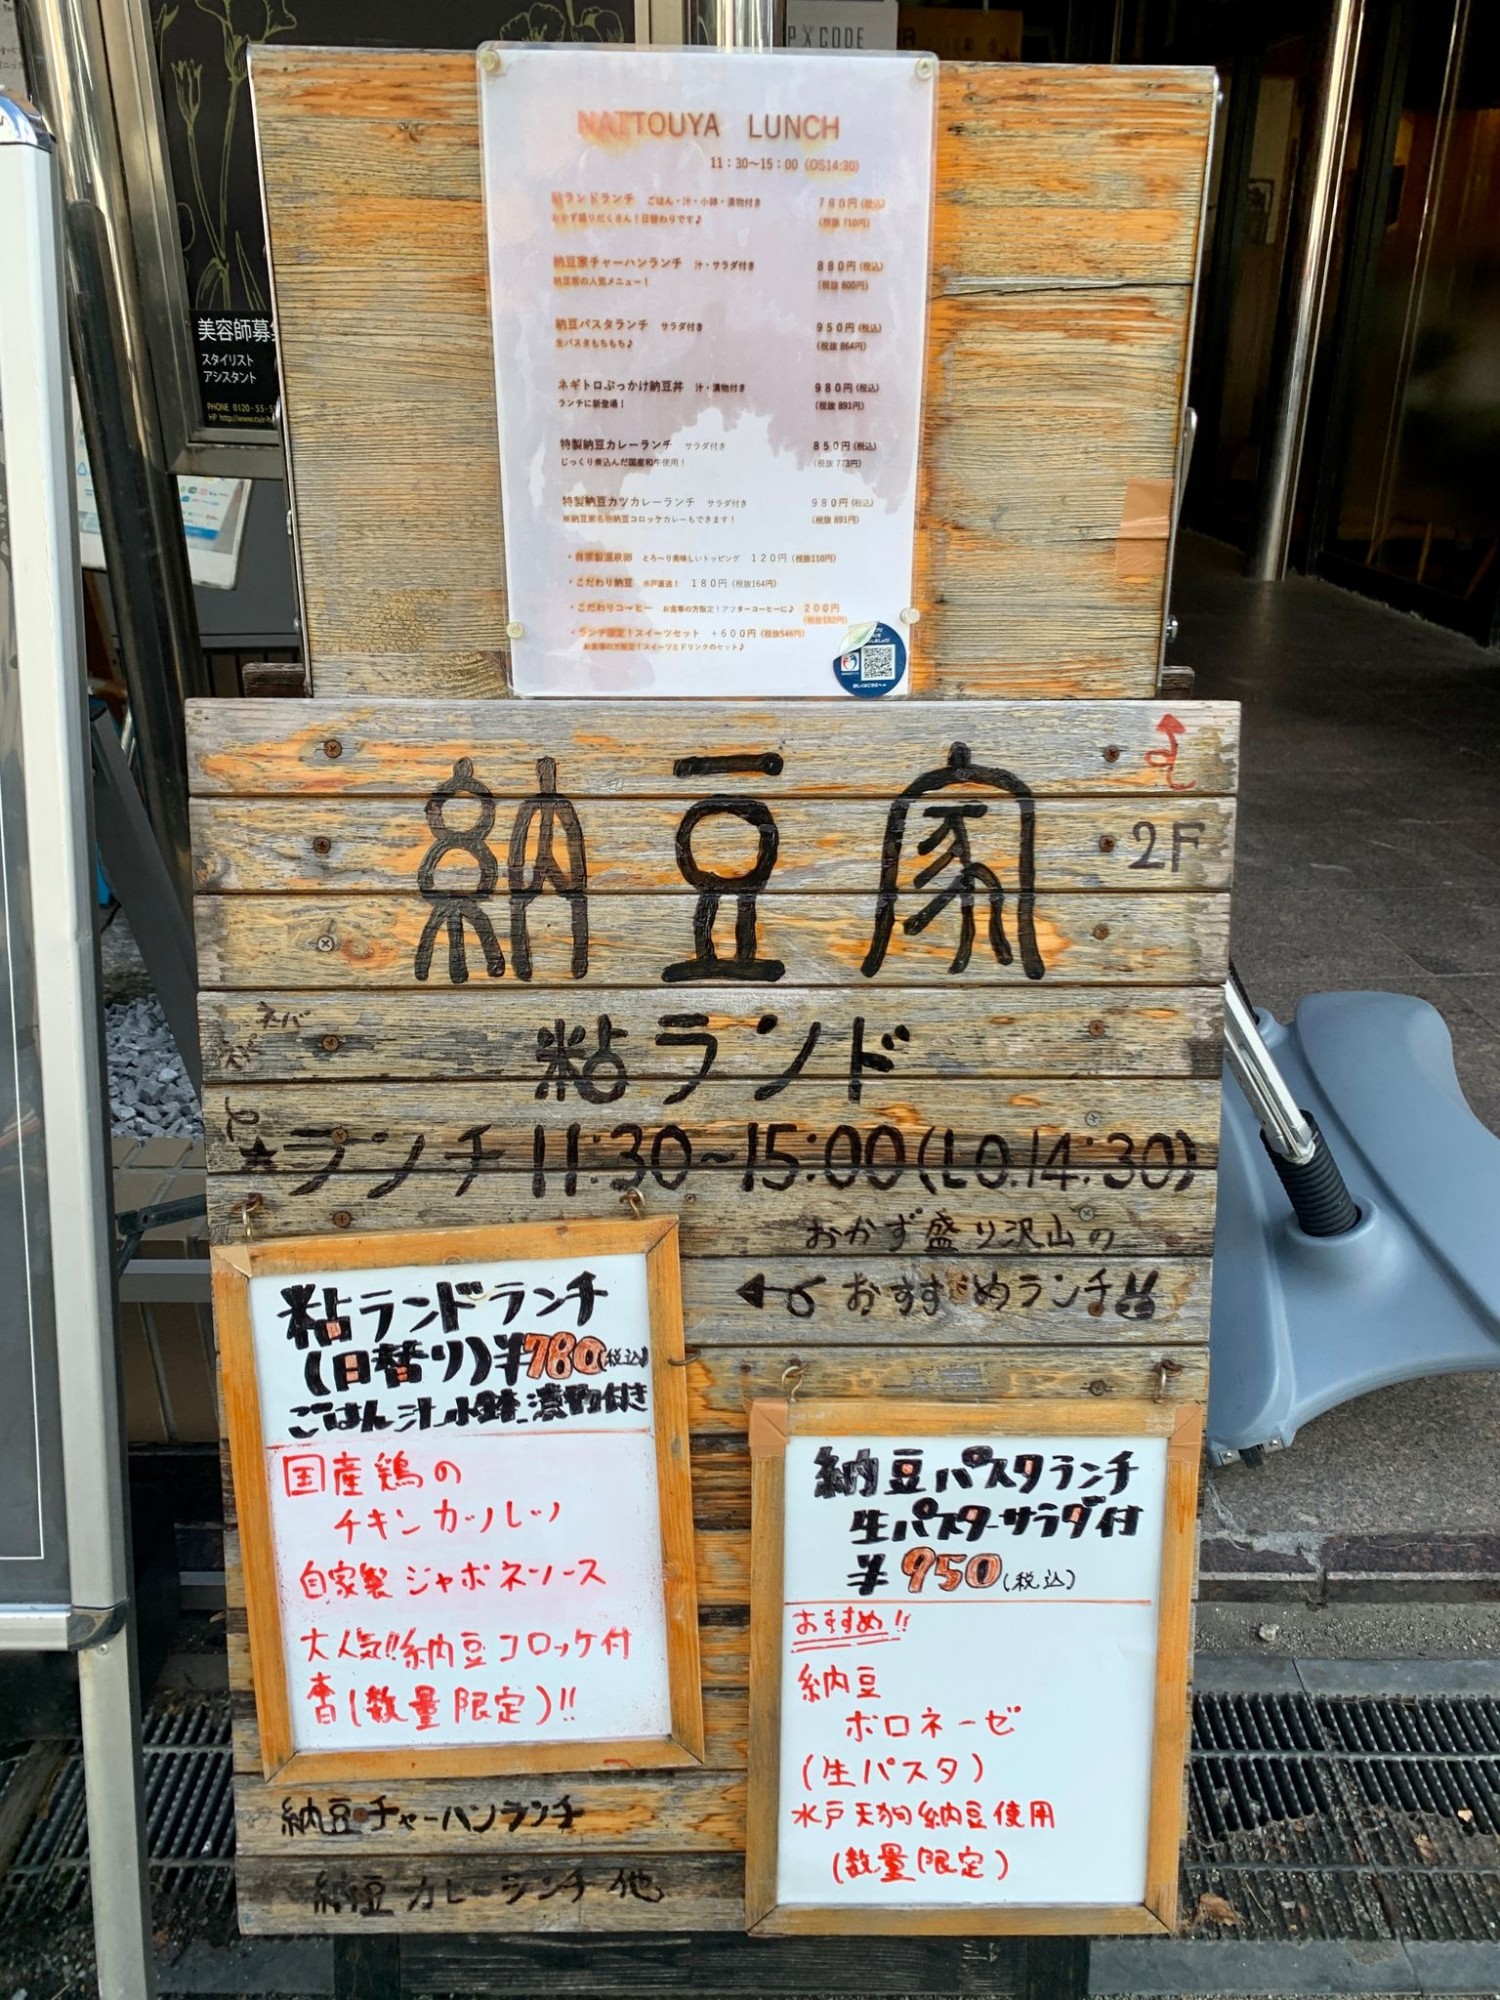 P X CODE
NATTOUYA LUNCH
11：30～15：00（OS14:30）
粘ランドランチ ごはん・汁・小鉢・漬物付き 780円（税込）
おかず盛りだくさん！日替わりです♪ （税抜 710円）
納豆家チャーハンランチ 汁・サラダ付き 880円（税込）
納豆家の人気メニュー！ （税抜 800円）
納豆パスタランチ サラダ付き 950円（税込）
生パスタもちもち♪ （税抜 864円）
ネギトロぶっかけ納豆丼 汁・漬物付き 980円（税込）
ランチに新登場！ （税抜 891円）
特製納豆カレーランチ サラダ付き 850円（税込）
じっくり煮込んだ国産和牛使用！ （税抜 773円）
特製納豆カツカレーランチ サラダ付き 980円（税込）
※納豆家名物納豆コロッケカレーもできます！ （税抜 891円）
・自家製温泉卵 とろ～り美味しいトッピング 120円（税抜110円）
・こだわり納豆 水戸直送！ 180円（税抜164円）
・こだわりコーヒー お食事の方限定！アフターコーヒーに♪ 200円
（税抜182円）
・ランチ限定！スイーツセット ＋600円（税抜546円）
お食事の方限定！スイーツとドリンクのセット♪
美容師募
スタイリスト
アシスタント
PHONE 0120-55-5
納豆家
2F
ネバ
ネバ
粘ランド
★ランチ11:30～15:00(LO.14:30)
おかず盛り沢山の
おすすめランチ
粘ランドランチ
(日替り)¥780(税込)
ごはん汁_小鉢_漬物付き
国産鶏の
チキンカツレツ
自家製ジャポネソース
大人気!!納豆コロッケ付
本日(数量限定)!!
納豆パスタランチ
生パスターサラダ付
¥950(税込)
おすすめ!!
納豆
ボロネーゼ
(生パスタ)
水戸天狗納豆使用
(数量限定)
納豆チャーハンランチ
納豆カレーランチ他